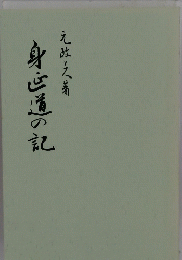 元政上人著
身延道の記